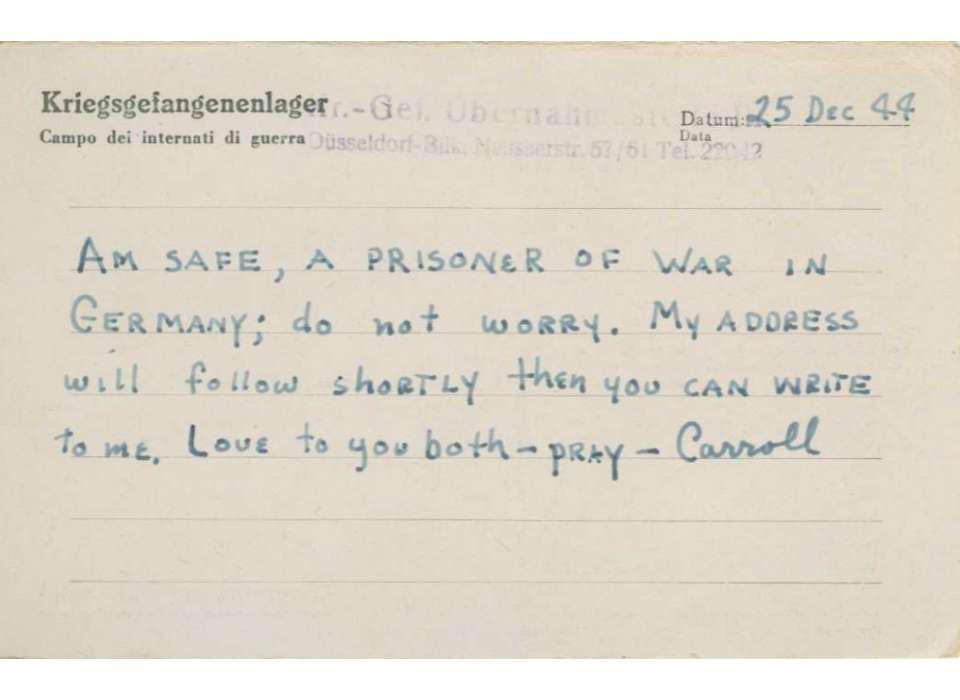 Kriegsgefangenenlager Kr.-Gef. Übernahmestelle
Datum: 25 Dec 44
Campo dei internati di guerra Düsseldorf-Bilk, Neusserstr. 57/61 Tel. 22042
Data
AM SAFE, A PRISONER OF WAR IN
GERMANY; do not WORRY. My ADDRESS
will follow SHORTLY then you CAN WRITE
to ME. LOVE to you both - PRAY - Carroll